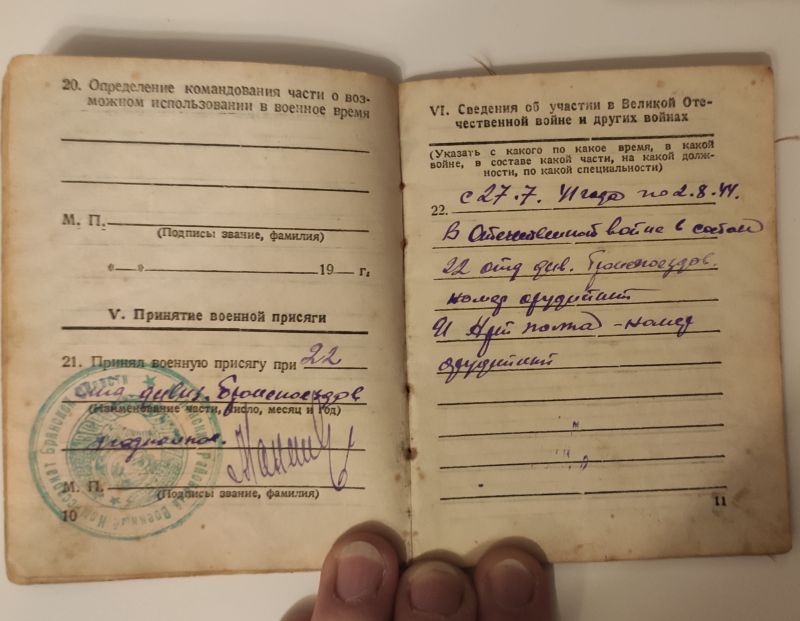 20. Определение командования части о воз-
можном использовании в военное время
М. П.
(Подписы звание, фамилия)
«__» 19__ г.
V. Принятие военной присяги
21. Принял военную присягу при 22
отд. дивиз. Бронепоездов
(Наименование части, число, месяц и год)
М. П.
(Подписы звание, фамилия)
10
VI. Сведения об участии в Великой Оте-
чественной войне и других войнах
(Указать с какого по какое время, в какой
войне, в составе какой части, на какой долж-
ности, по какой специальности)
22. с 27.7. 41 года по 2.8.44.
В Отечественной войне в составе
22 отд див. Бронепоездов.
номер орудийный
Арт полка - номер
орудийный
11